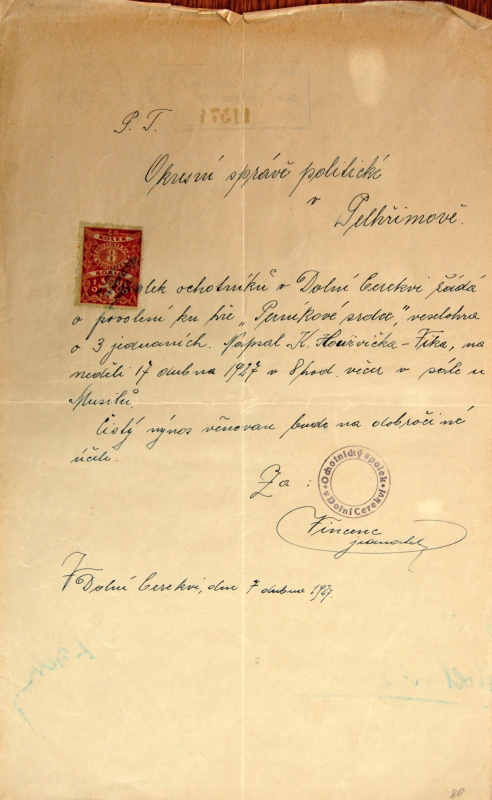 P. T.
Okresní správě politické
v
Pelhřimově.
KOLEK
3
Spolek ochotníků v Dolní Cerekvi žádá
o povolení ku hře „Perníkové srdce", veselohra
o 3 jednáních. Napsal K. Houžvička - Fika, na
neděli 17 dubna 1927 v 8 hod. večer v sále u
Musilů.
Čistý výnos věnován bude na dobročinné
účele.
Za :
Ochotnický spolek
v Dolní Cerekvi
Vincenc
jednatel
V Dolní Cerekvi, dne 7 dubna 1927.
80